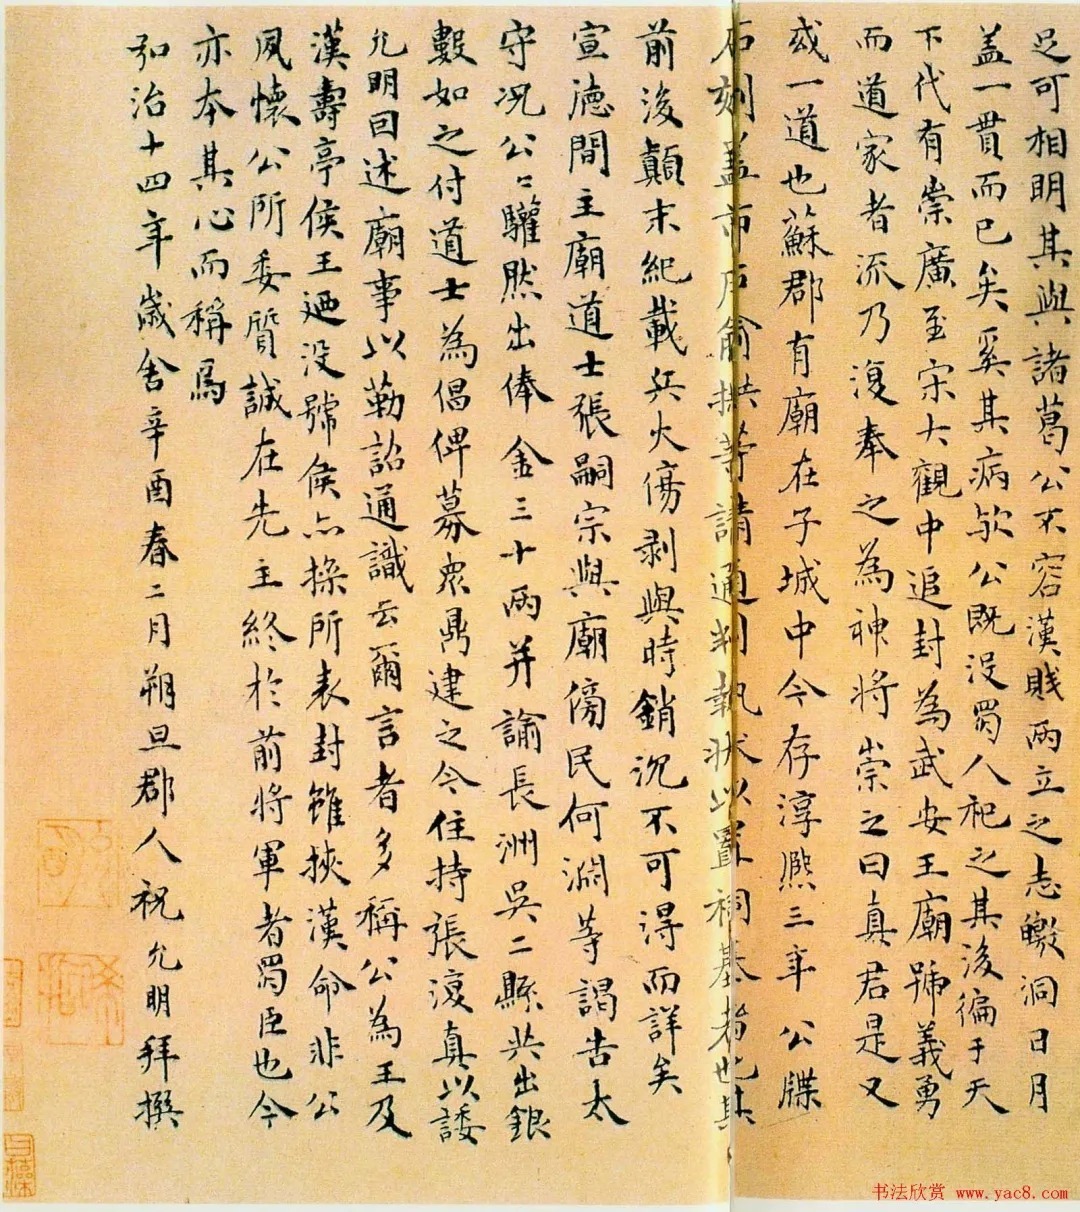 足可相明其與諸葛公不容漢賊兩立之志皦洞日月
盖一貫而已矣奚其病欤公既没蜀人祀之其後徧于天
下代有崇廣至宋大觀中追封為武安王廟號義勇
而道家者流乃復奉之為神將崇之曰真君是又
或一道也蘇郡有廟在子城中今存淳熈三年公牒
石刻盖市戶俞拱等請通判執狀以置祠基者也其
前後顛末紀載兵火傷剥與時銷沉不可得而詳矣
宣德間主廟道士張嗣宗與廟傍民何淵等謁告太
守况公公驩然出俸金三十兩并諭長洲吳二縣共出銀
數如之付道士為倡俾募衆鼎建之今住持張復真以諉
允明囙述廟事以勒詔通識云爾言者多稱公為王及
漢壽亭侯王廼没號侯亦操所表封雖挾漢命非公
夙懷公所委質誠在先主終於前將軍者蜀臣也今
亦本其心而稱焉
弘治十四年歲舍辛酉春二月朔旦郡人祝允明拜撰
书法欣赏 www.yac8.com